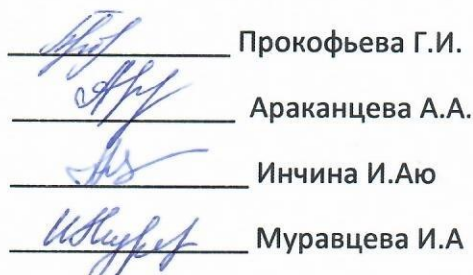 Прокофьева Г.И.
Араканцева А.А.
Инчина И.Аю
Муравцева И.А